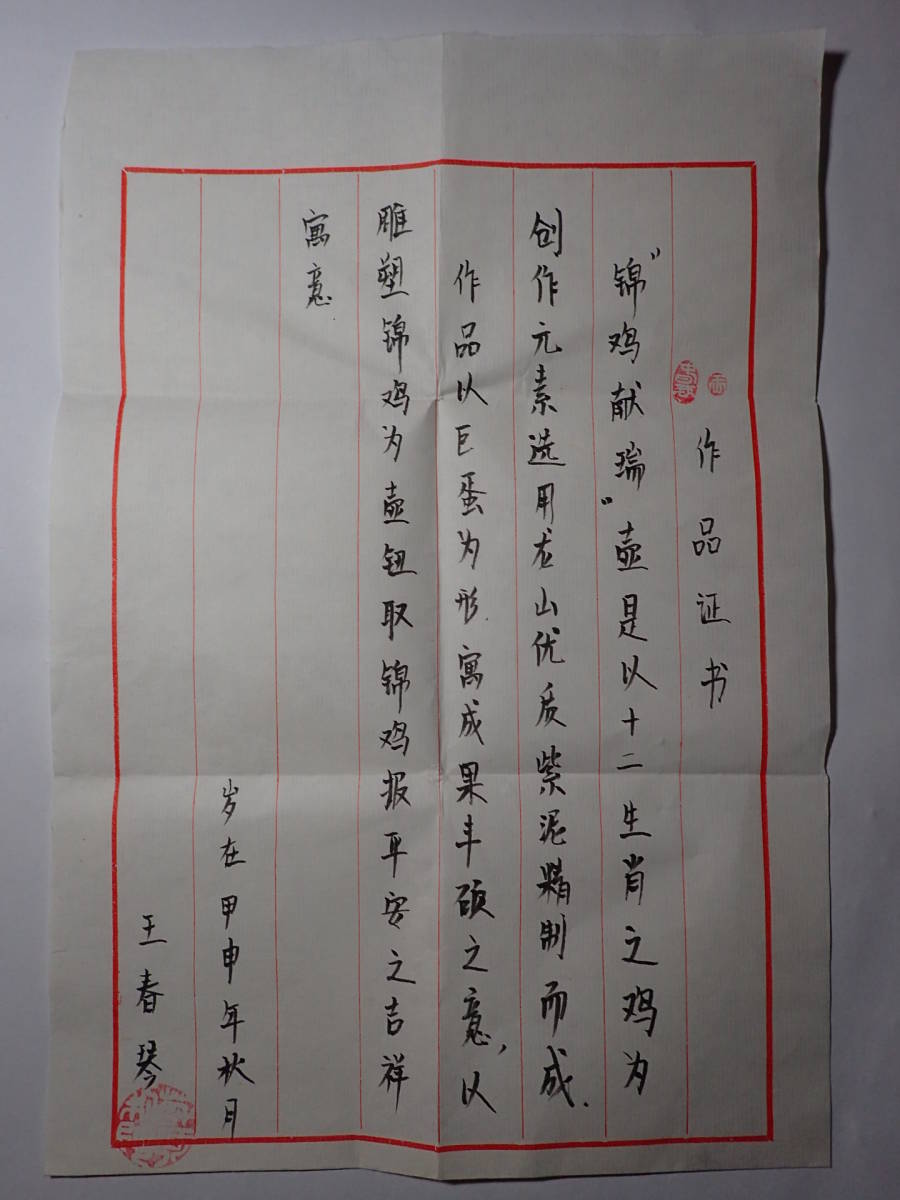 作品证书
“锦鸡献瑞”壶是以十二生肖之鸡为
创作元素选用龙山优质紫泥精制而成.
作品以巨蛋为形.寓成果丰硕之意,以
雕塑锦鸡为壶钮取锦鸡报平安之吉祥
寓意.
岁在甲申年秋月
王春琴